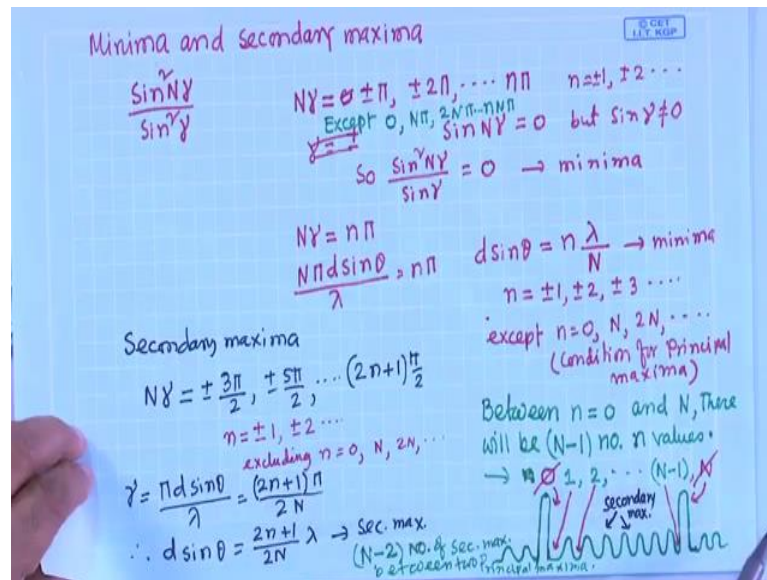 Minima and secondary maxima
© CET
I.I.T. KGP
Sin²Nγ / Sin²γ
Nγ = ±π, ±2π, ···· nπ n=±1, ±2···
Except 0, Nπ, 2Nπ--nNπ
Sin Nγ = 0 but Sin γ ≠ 0
So Sin²Nγ / Sinγ = 0 → minima
Nγ = nπ
Nπdsinθ / λ = nπ
dsinθ = n λ/N → minima
n = ±1, ±2, ±3 ····
except n=0, N, 2N, ····
(Condition for Principal
maxima)
Secondary maxima
Nγ = ± 3π/2, ± 5π/2, ···· (2n+1) π/2
n = ±1, ±2 ····
excluding n=0, N, 2N, ···
γ = πdsinθ / λ = (2n+1)π / 2N
∴ dsinθ = 2n+1 / 2N λ → Sec. max.
Between n=0 and N, There
will be (N-1) no. n values.
→ 0 1, 2, ··· (N-1), N
secondary
max.
(N-2) no. of sec. max.
between two Principal maxima.